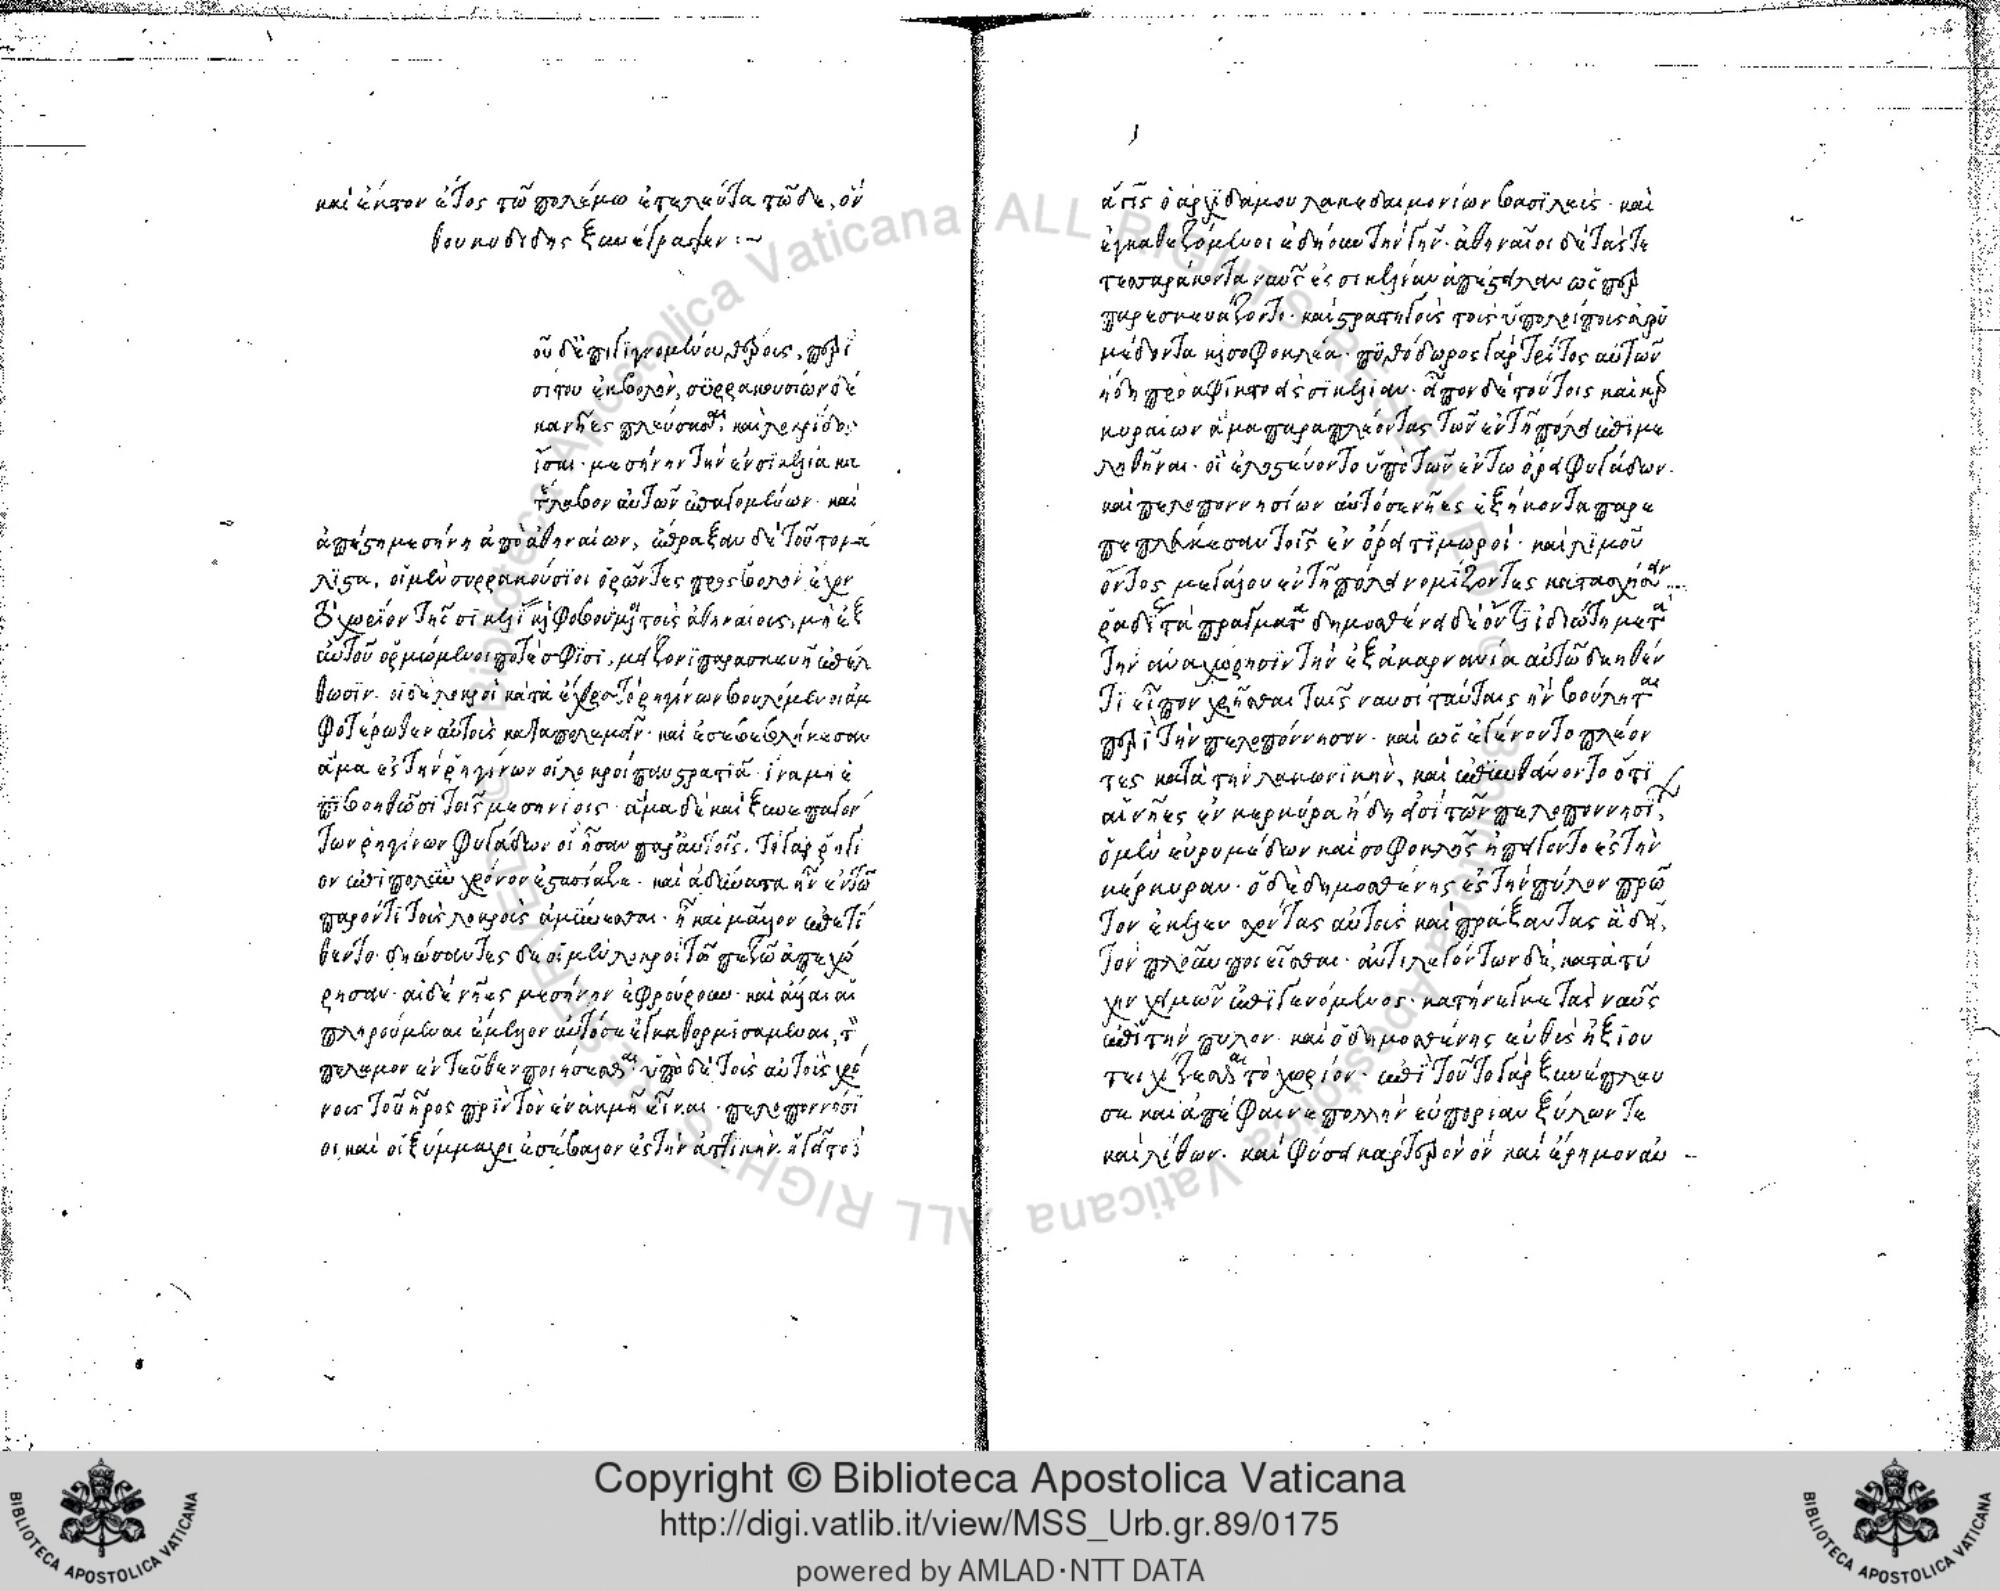 καὶ ἕκτον ἔτος τῶ πολέμω ἐτελεύτα τῶδε, ὃν
θουκυδίδης ξυνέγραψεν :~
οῦ δ' ἐπιγιγνομένου θέρους, περὶ
σίτου ἐκβολὴν, συρρακουσίων δέ
κα νῆες πλεύσασαι, καὶ λοκρίδες
ἴσαι· μεσήνην τὴν ἐν σικελία κα
τέλαβον αὐτῶν ἐπαγομένων· καὶ
ἀπέστη μεσήνη ἀπὸ ἀθηναίων, ἔπραξαν δὲ τοῦτο μά
λιστα, οἱ μὲν συρρακούσιοι ὁρῶντες προσβολὴν ἔχον
τὸ χωρίον τῆς σικελίας καὶ φοβούμενοι τοὺς ἀθηναίους, μὴ ἐξ
αὐτοῦ ὁρμώμενοι ποτὲ σφίσι, μείζονι παρασκευῆ ἐπέλ
θωσιν· οἱ δὲ λοκροὶ κατὰ ἔχθος τὸ ῥηγίνων βουλόμενοι ἀμ
φοτέρωθεν αὐτοὺς καταπολεμεῖν· καὶ ἐσεβεβλήκεσαν
ἅμα ἐς τὴν ῥηγίνων οἱ λοκροὶ πανστρατιᾶ· ἵνα μὴ ἐ
πιβοηθῶσι τοῖς μεσηνίοις· ἅμα δὲ καὶ ξυνεπαγόν
των ῥηγίνων φυγάδων οἳ ἦσαν παρ' αὐτοῖς. τὸ γὰρ ῥήγι
ον ἐπὶ πολὺν χρόνον ἐστασίαζε· καὶ ἀδύνατα ἦν ἐν τῶ
παρόντι τοὺς λοκροὺς ἀμύνεσθαι· ἧ καὶ μᾶλλον ἐπετί
θεντο· δηώσαντες δὲ οἱ μὲν λοκροὶ τῶ πεζῶ ἀπεχώ
ρησαν· αἱ δὲ νῆες μεσήνην ἐφρούρουν· καὶ ἄλλαι αἱ
πληρούμεναι ἔμελλον αὐτόσε ἐγκαθορμισάμεναι, τὸν
πόλεμον ἐντεῦθεν ποιήσεσθαι· ὑπὸ δὲ τοὺς αὐτοὺς χρό
νους τοῦ ἦρος πρὶν τὸν ἐν ἀκμῆ εἶναι· πελοποννήσι
οι καὶ οἱ ξύμμαχοι ἐσέβαλον ἐς τὴν ἀττικὴν. ἡγεῖτο δ
ἆγις ὁ ἀρχιδάμου λακεδαιμονίων βασιλεύς· καὶ
ἐγκαθεζόμενοι ἐδήουν τὴν γῆν· ἀθηναῖοι δὲ τάς τε
τεσσαράκοντα ναῦς ἐς σικελίαν ἀπέστειλαν ὥσπερ
παρεσκευάζοντο· καὶ στρατηγοὺς τοὺς ὑπολοίπους εὐρυ
μέδοντα καὶ σοφοκλέα· πυθόδωρος γὰρ τρίτος αὐτῶν
ἤδη προαφίκτο ἐς σικελίαν· εἶπον δὲ τούτοις καὶ κερ
κυραίων ἅμα παραπλέοντας τῶν ἐν τῆ πόλει ἐπιμε
ληθῆναι· οἳ ἐληστεύοντο ὑπὸ τῶν ἐν τῶ ὄρει φυγάδων.
καὶ πελοποννησίων αὐτόσε νῆες ἑξήκοντα παρε
πεπλεύκεσαν τοῖς ἐν ὄρει τιμωροί· καὶ λιμοῦ
ὄντος μεγάλου ἐν τῆ πόλει νομίζοντες κατασχήσειν
ῥαδίως τὰ πράγματα· δημοσθένει δὲ ὄντι ἰδιώτη μετὰ
τὴν ἀναχώρησιν τὴν ἐξ ἀκαρνανία αὐτῶ δεηθέν
τι εἶπον χρῆσθαι ταῖς ναυσὶ ταύταις ἢν βούληται
περὶ τὴν πελοπόννησον· καὶ ὡς ἐγένοντο πλέον
τες κατὰ τὴν λακωνικὴν, καὶ ἐπυνθάνοντο ὅτι
αἱ νῆες ἐν κερκύρα ἤδη εἰσὶ τῶν πελοποννησίων,
ὁ μὲν εὐρυμέδων καὶ σοφοκλῆς ἠπείγοντο ἐς τὴν
κέρκυραν· ὁ δὲ δημοσθένης ἐς τὴν πύλον πρῶ
τον ἐκέλευεν σχόντας αὐτοὺς καὶ πράξαντας ἃ δεῖ,
τὸν πλοῦν ποιεῖσθαι· ἀντιλεγόντων δὲ, κατὰ τύ
χην χειμὼν ἐπιγενόμενος· κατήνεγκε τὰς ναῦς
ἐπὶ τὴν πύλον· καὶ ὁ δημοσθένης εὐθὺς ἠξίου
τειχίζεσθαι τὸ χωρίον· ἐπὶ τοῦτο γὰρ ξυνέπλευ
σε καὶ ἀπέφαινε πολλὴν εὐπορίαν ξύλων τε
καὶ λίθων· καὶ φύσει καρτερὸν ὂν καὶ ἐρῆμον αὐ
Copyright © Biblioteca Apostolica Vaticana
http://digi.vatlib.it/view/MSS_Urb.gr.89/0175
powered by AMLAD·NTT DATA